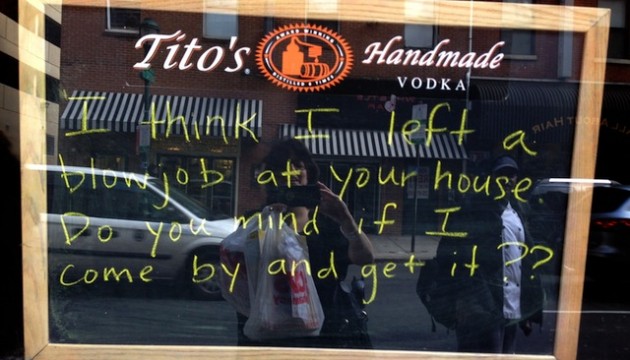 Tito's Handmade
VODKA
AWARD WINNING
I think I left a
blowjob at your house.
Do you mind if I
come by and get it??